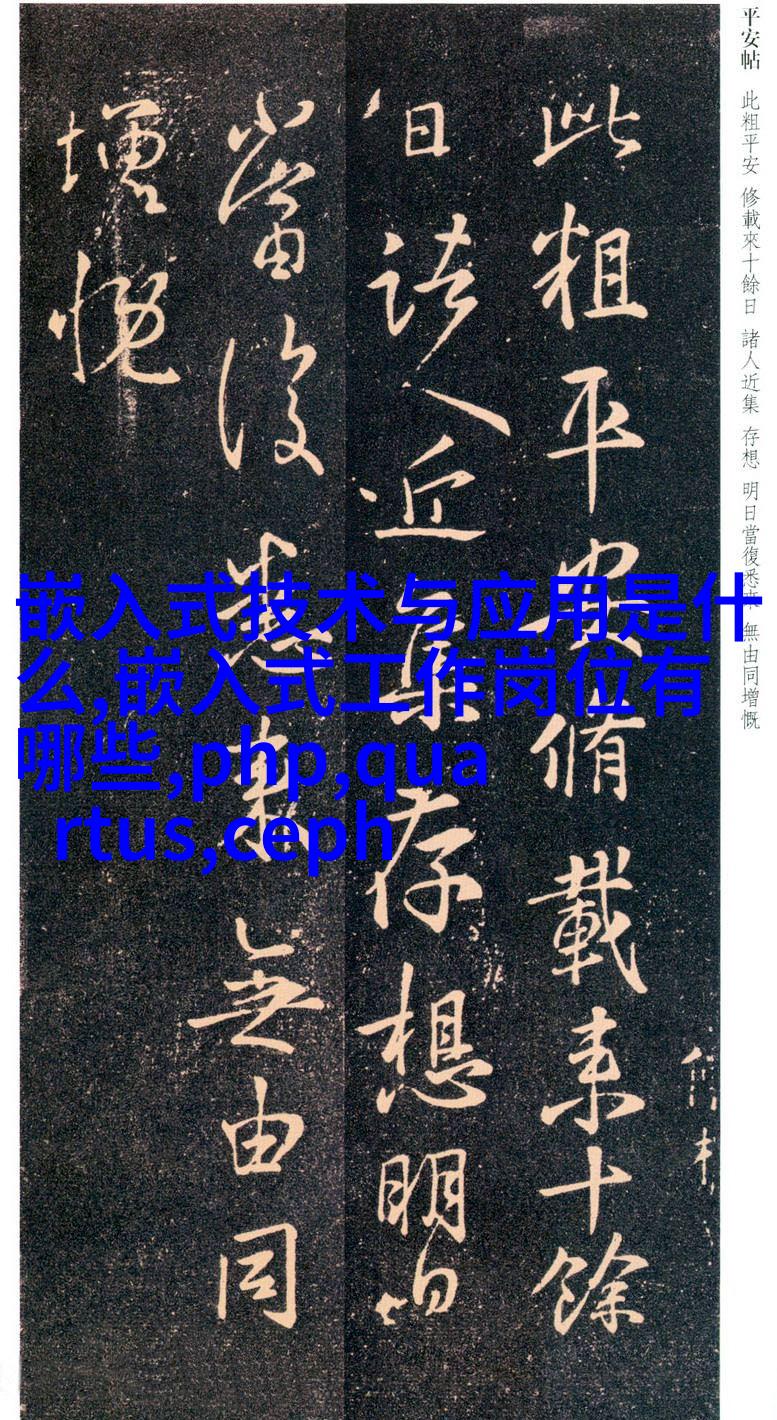 平安帖 此粗平安 修載來十餘日 諸人近集 存想 明日當復悉來 無由同增慨
此粗平安脩載来十餘
日諸人近集存想明日
當復悉来無由同
增慨
嵌入式技术与应用是什
么,嵌入式工作岗位有
哪些,php,qua
rtus,ceph